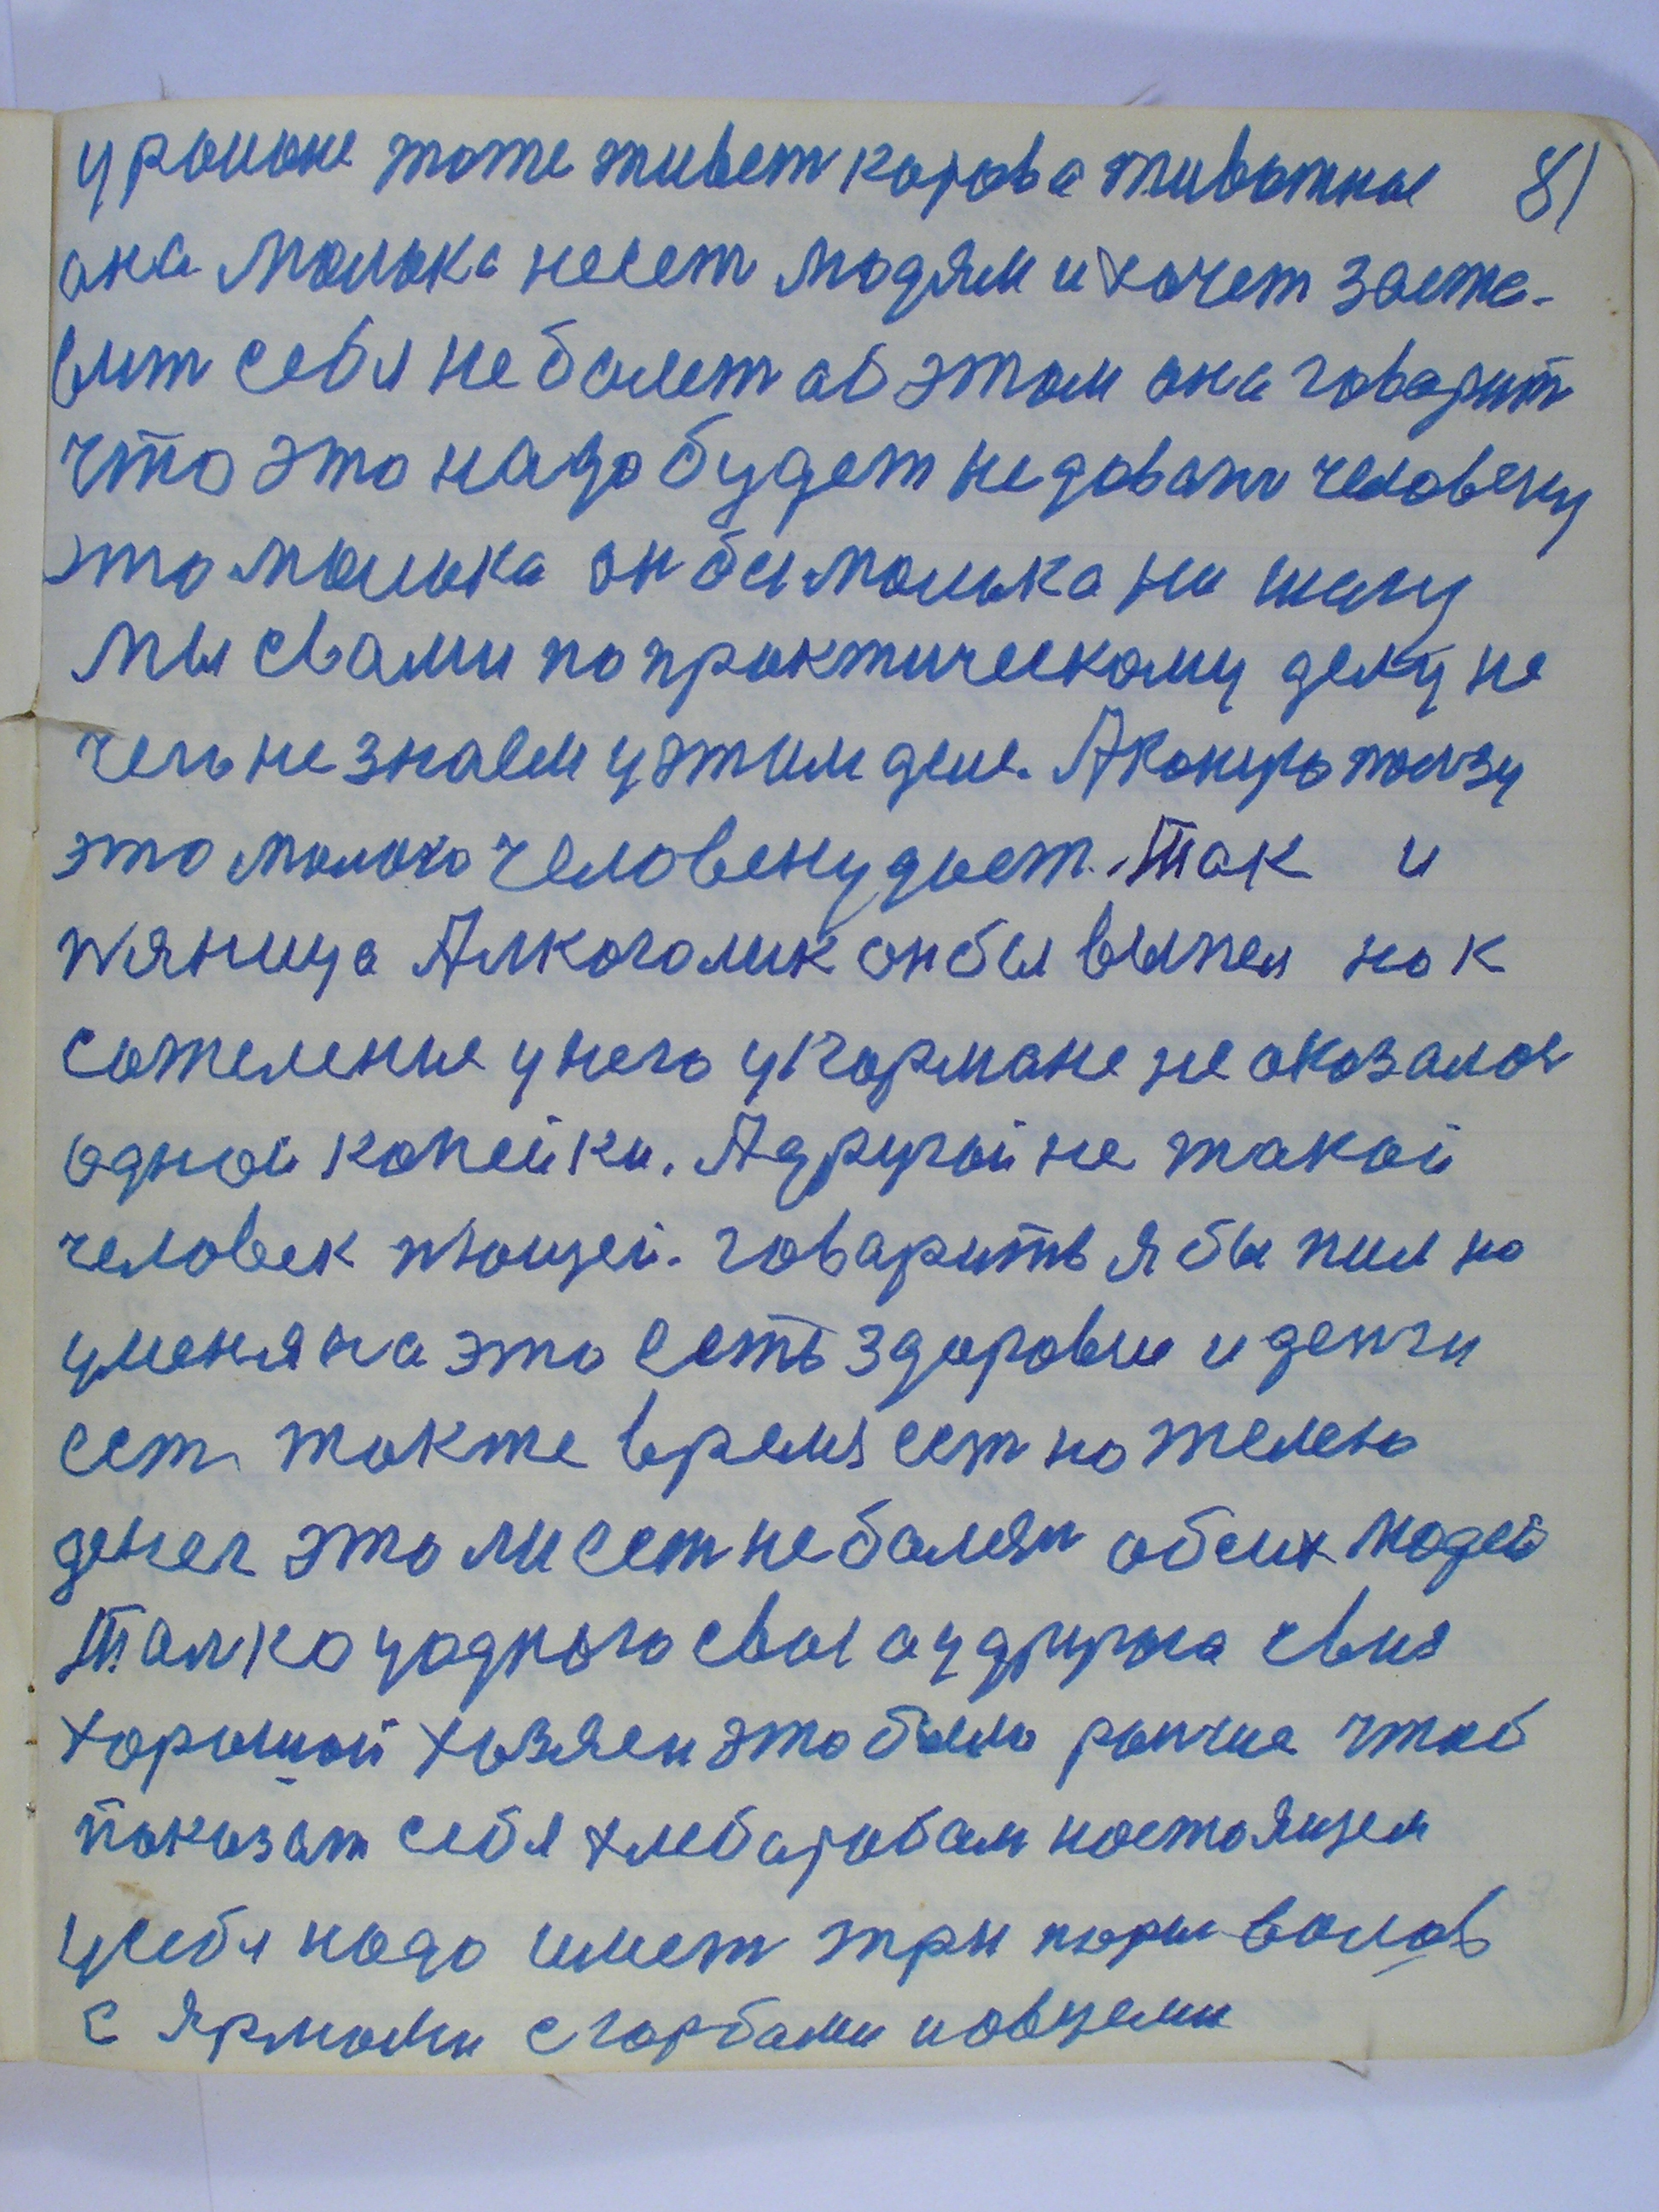 у районе тоже живет карова животные 81
она молока несет людям и хочет заста-
вит себя не болет об этом она говарит
что это надо будет не довать человеку
это молока он бы молока ни
мы с вами по практическому делу не
чего не знаем у этим деле. А
это молоко человеку дает. Так и
пяница Алкоголик он бы выпел но к
сожеленье у него у кармане не оказалос
одной копейки. А другой не такой
человек пющей. говарить я бы пил но
у меня на это есть здоровье и денги
ест также время ест но жалею
денег это лисет не болязн обеих людей
Талко у одного своя а у другога своя
хорошой хозяен это было ранше чтоб
показат себя хлебаробам настоящем
у себя надо имет три пары валов
с ярмами с гарбами и овцеми